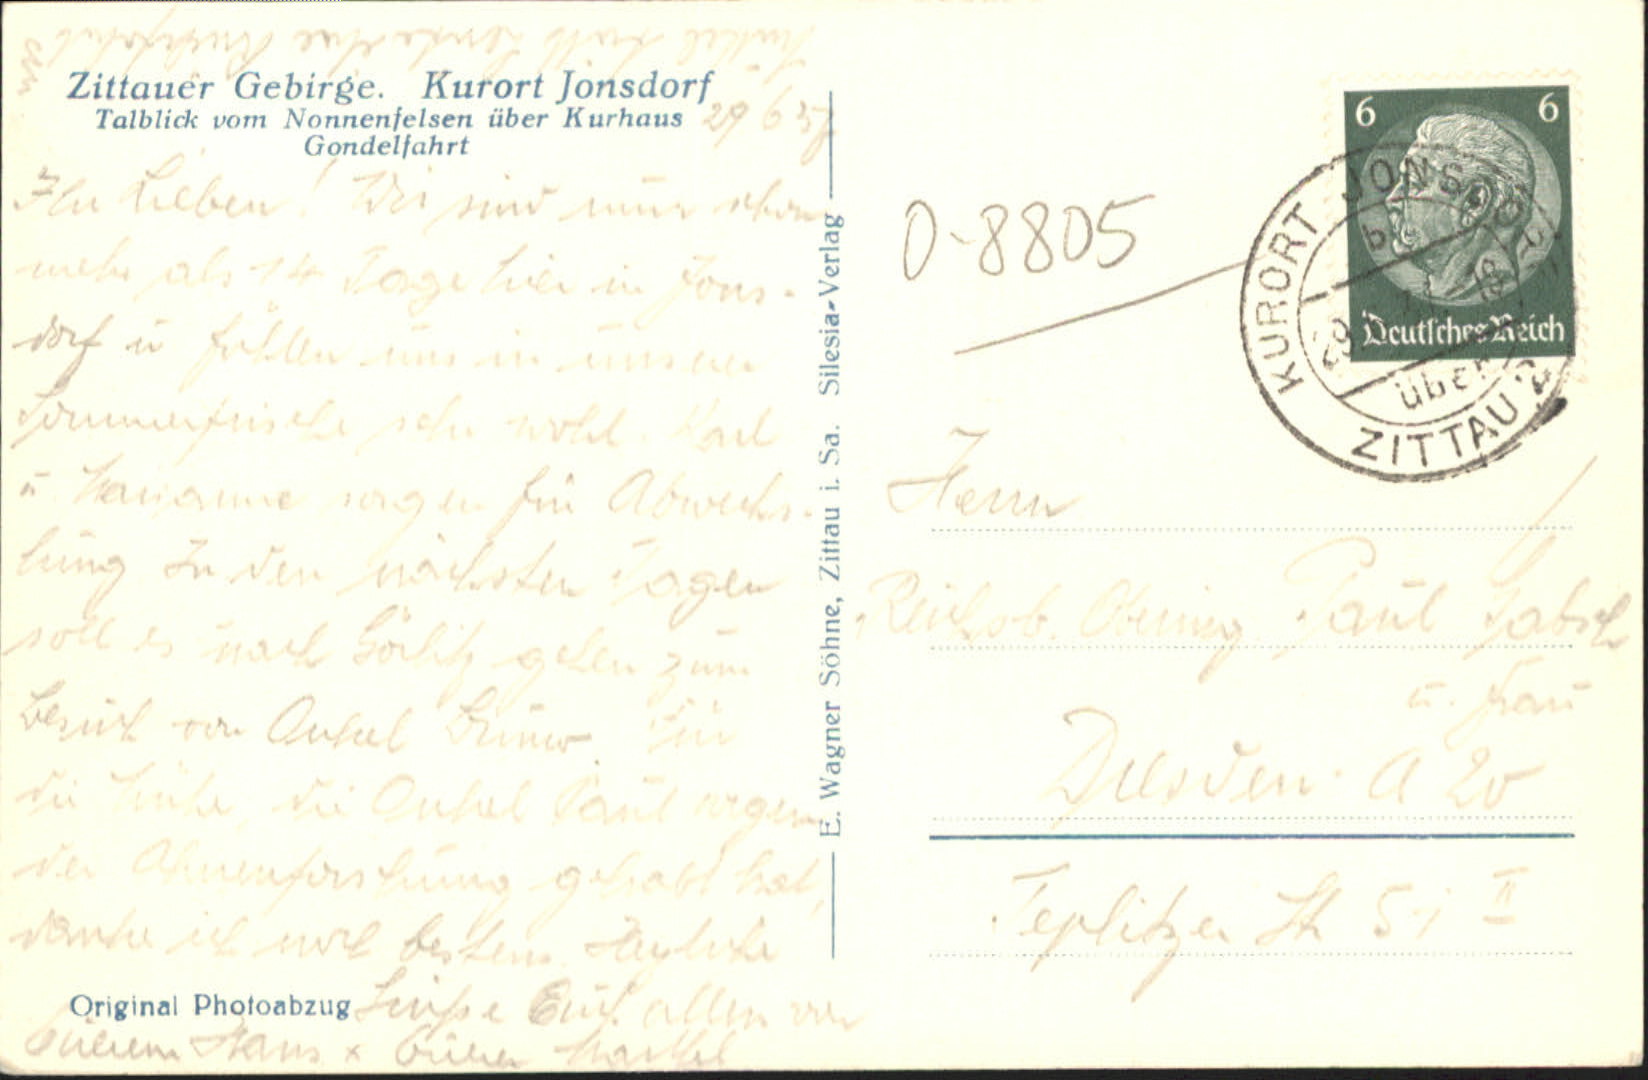 Zittauer Gebirge. Kurort Jonsdorf
Talblick vom Nonnenfelsen über Kurhaus
Gondelfahrt
29 6 37
Ihr Lieben! Wir sind nun schon
mehr als 14 Tage hier in Jons-
dorf u fühlen uns in unserer
Sommerfrische sehr wohl. Karl
u. Marianne sorgen für Abwechs-
lung In den nächsten Tagen
soll es nach Görlitz gehen zum
Besuch von Onkel Bruno. Für
die Mühe, die Onkel Paul wegen
der Ahnenforschung gehabt hat,
danke ich noch bestens. Herzliche
Grüsse Euch allen von
Eurem Hans x Eurer
Original Photoabzug
E. Wagner Söhne, Zittau i. Sa. Silesia-Verlag
0-8805
6 6
Deutsches Reich
KURORT JONSDORF
b
29
über
ZITTAU
Herrn
Reichsb. Oberinsp. Paul
u. Frau
Dresden A 20
Teplitzer Str 51 II